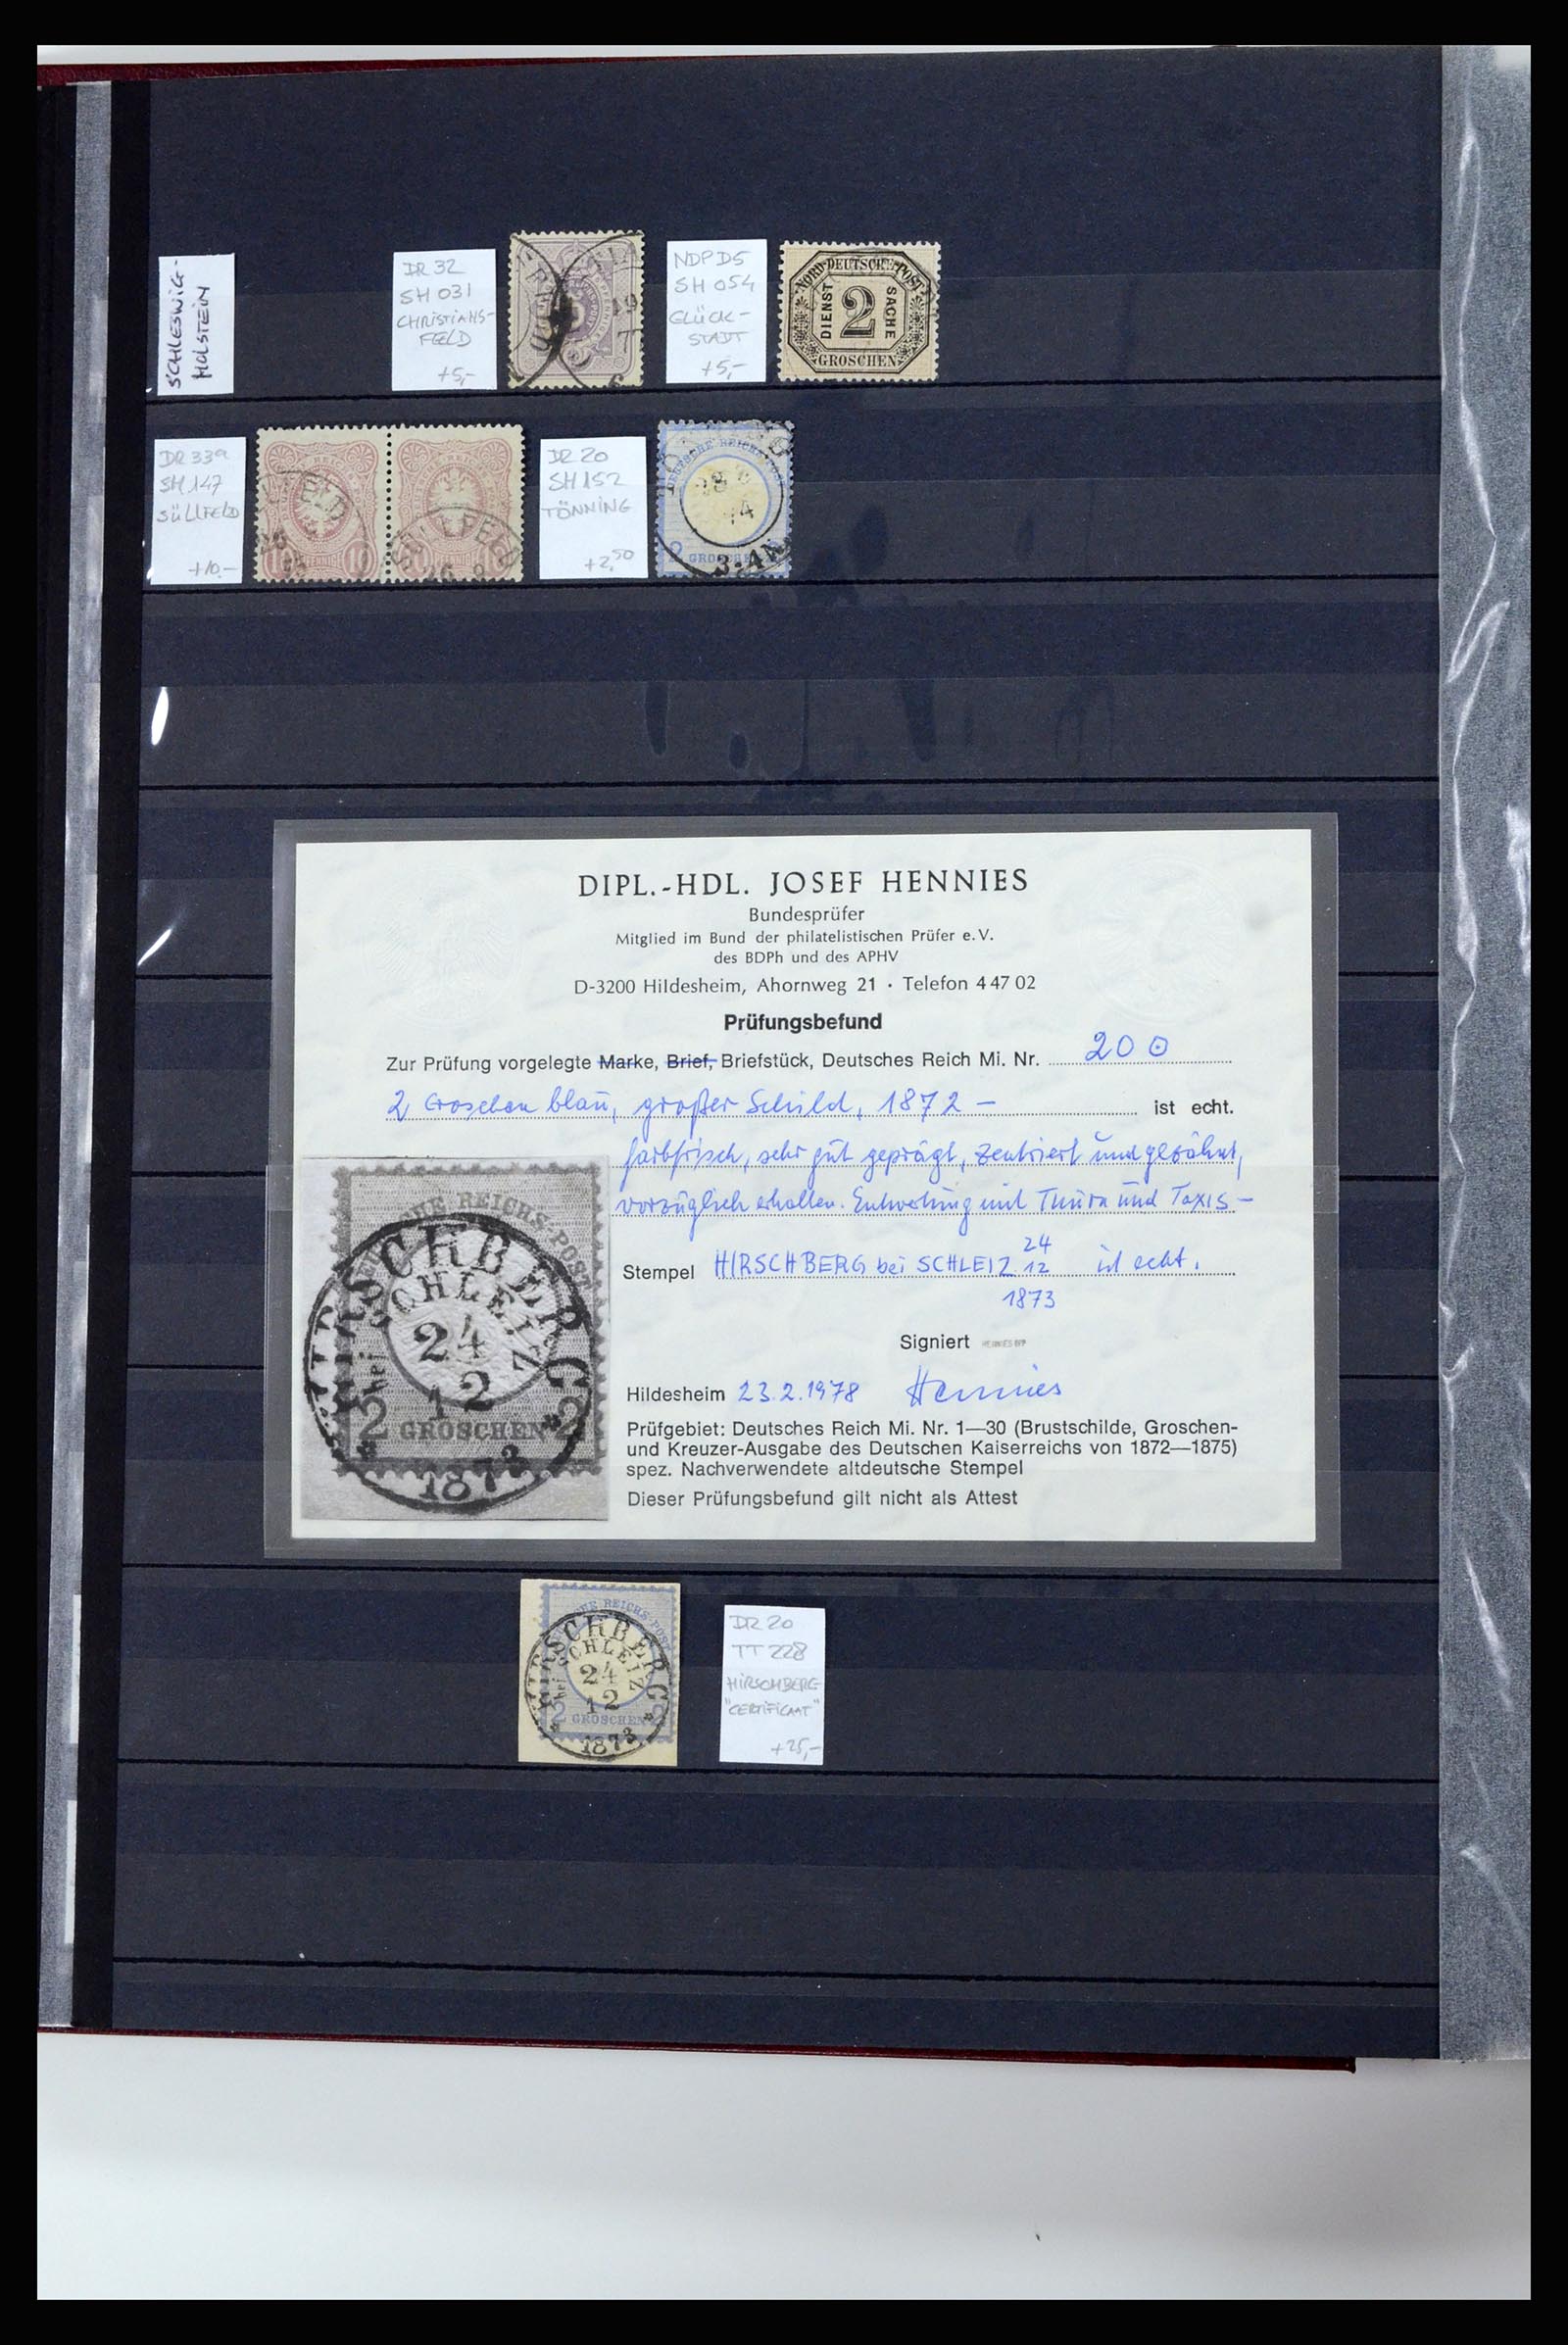 SCHLESWIG-
HOLSTEIN
DR 32
SH 031
CHRISTIANS-
FELD
+5,-
NDP D5
SH 054
GLÜCK-
STADT
+5,-
NORD-DEUTSCHE-POST
DIENST
2
SACHE
GROSCHEN
DR 33a
SH 147
SÜLLFELD
+10,-
DR 20
SH 152
TÖNNING
+2,50
2 GROSCHEN
DIPL.-HDL. JOSEF HENNIES
Bundesprüfer
Mitglied im Bund der philatelistischen Prüfer e.V.
des BDPh und des APHV
D-3200 Hildesheim, Ahornweg 21 · Telefon 4 47 02
Prüfungsbefund
Zur Prüfung vorgelegte Marke, Brief, Briefstück, Deutsches Reich Mi. Nr. 20 ⊙
2 Groschen blau, großer Schild, 1872 – ist echt.
farbfrisch, sehr gut geprägt, zentriert und gezähnt,
vorzüglich erhalten. Entwertung mit Thurn und Taxis –
Stempel HIRSCHBERG bei SCHLEIZ 24/12 ist echt.
1873
Signiert HENNIES BPP
Hildesheim 23.2.1978 Hennies
Prüfgebiet: Deutsches Reich Mi. Nr. 1—30 (Brustschilde, Groschen-
und Kreuzer-Ausgabe des Deutschen Kaiserreichs von 1872—1875)
spez. Nachverwendete altdeutsche Stempel
Dieser Prüfungsbefund gilt nicht als Attest
DEUTSCHE REICHS-POST
HIRSCHBERG
bei SCHLEIZ
24
12
2 GROSCHEN 2
1873
HIRSCHBERG
bei SCHLEIZ
24
12
2 GROSCHEN 2
1873
DR 20
TT 228
HIRSCHBERG
"CERTIFICAAT"
+25,-